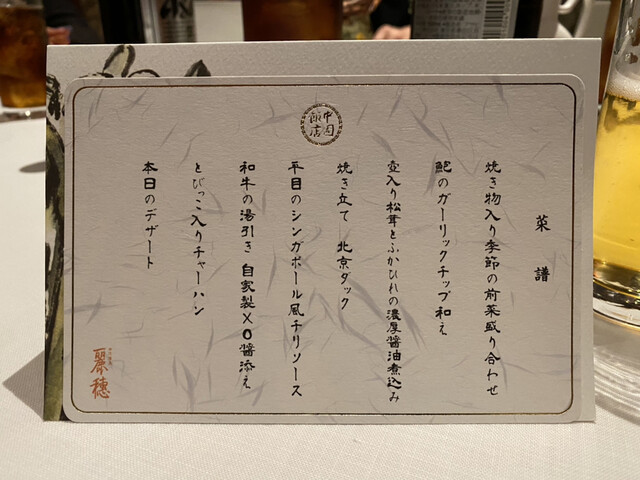 中国
飯店
菜譜
焼き物入り季節の前菜盛り合わせ
鮑のガーリックチップ和え
壺入り松茸とふかひれの濃厚醤油煮込み
焼き立て 北京ダック
平目のシンガポール風チリソース
和牛の湯引き 自家製XO醤添え
とびっこ入りチャーハン
本日のデザート
麗穂